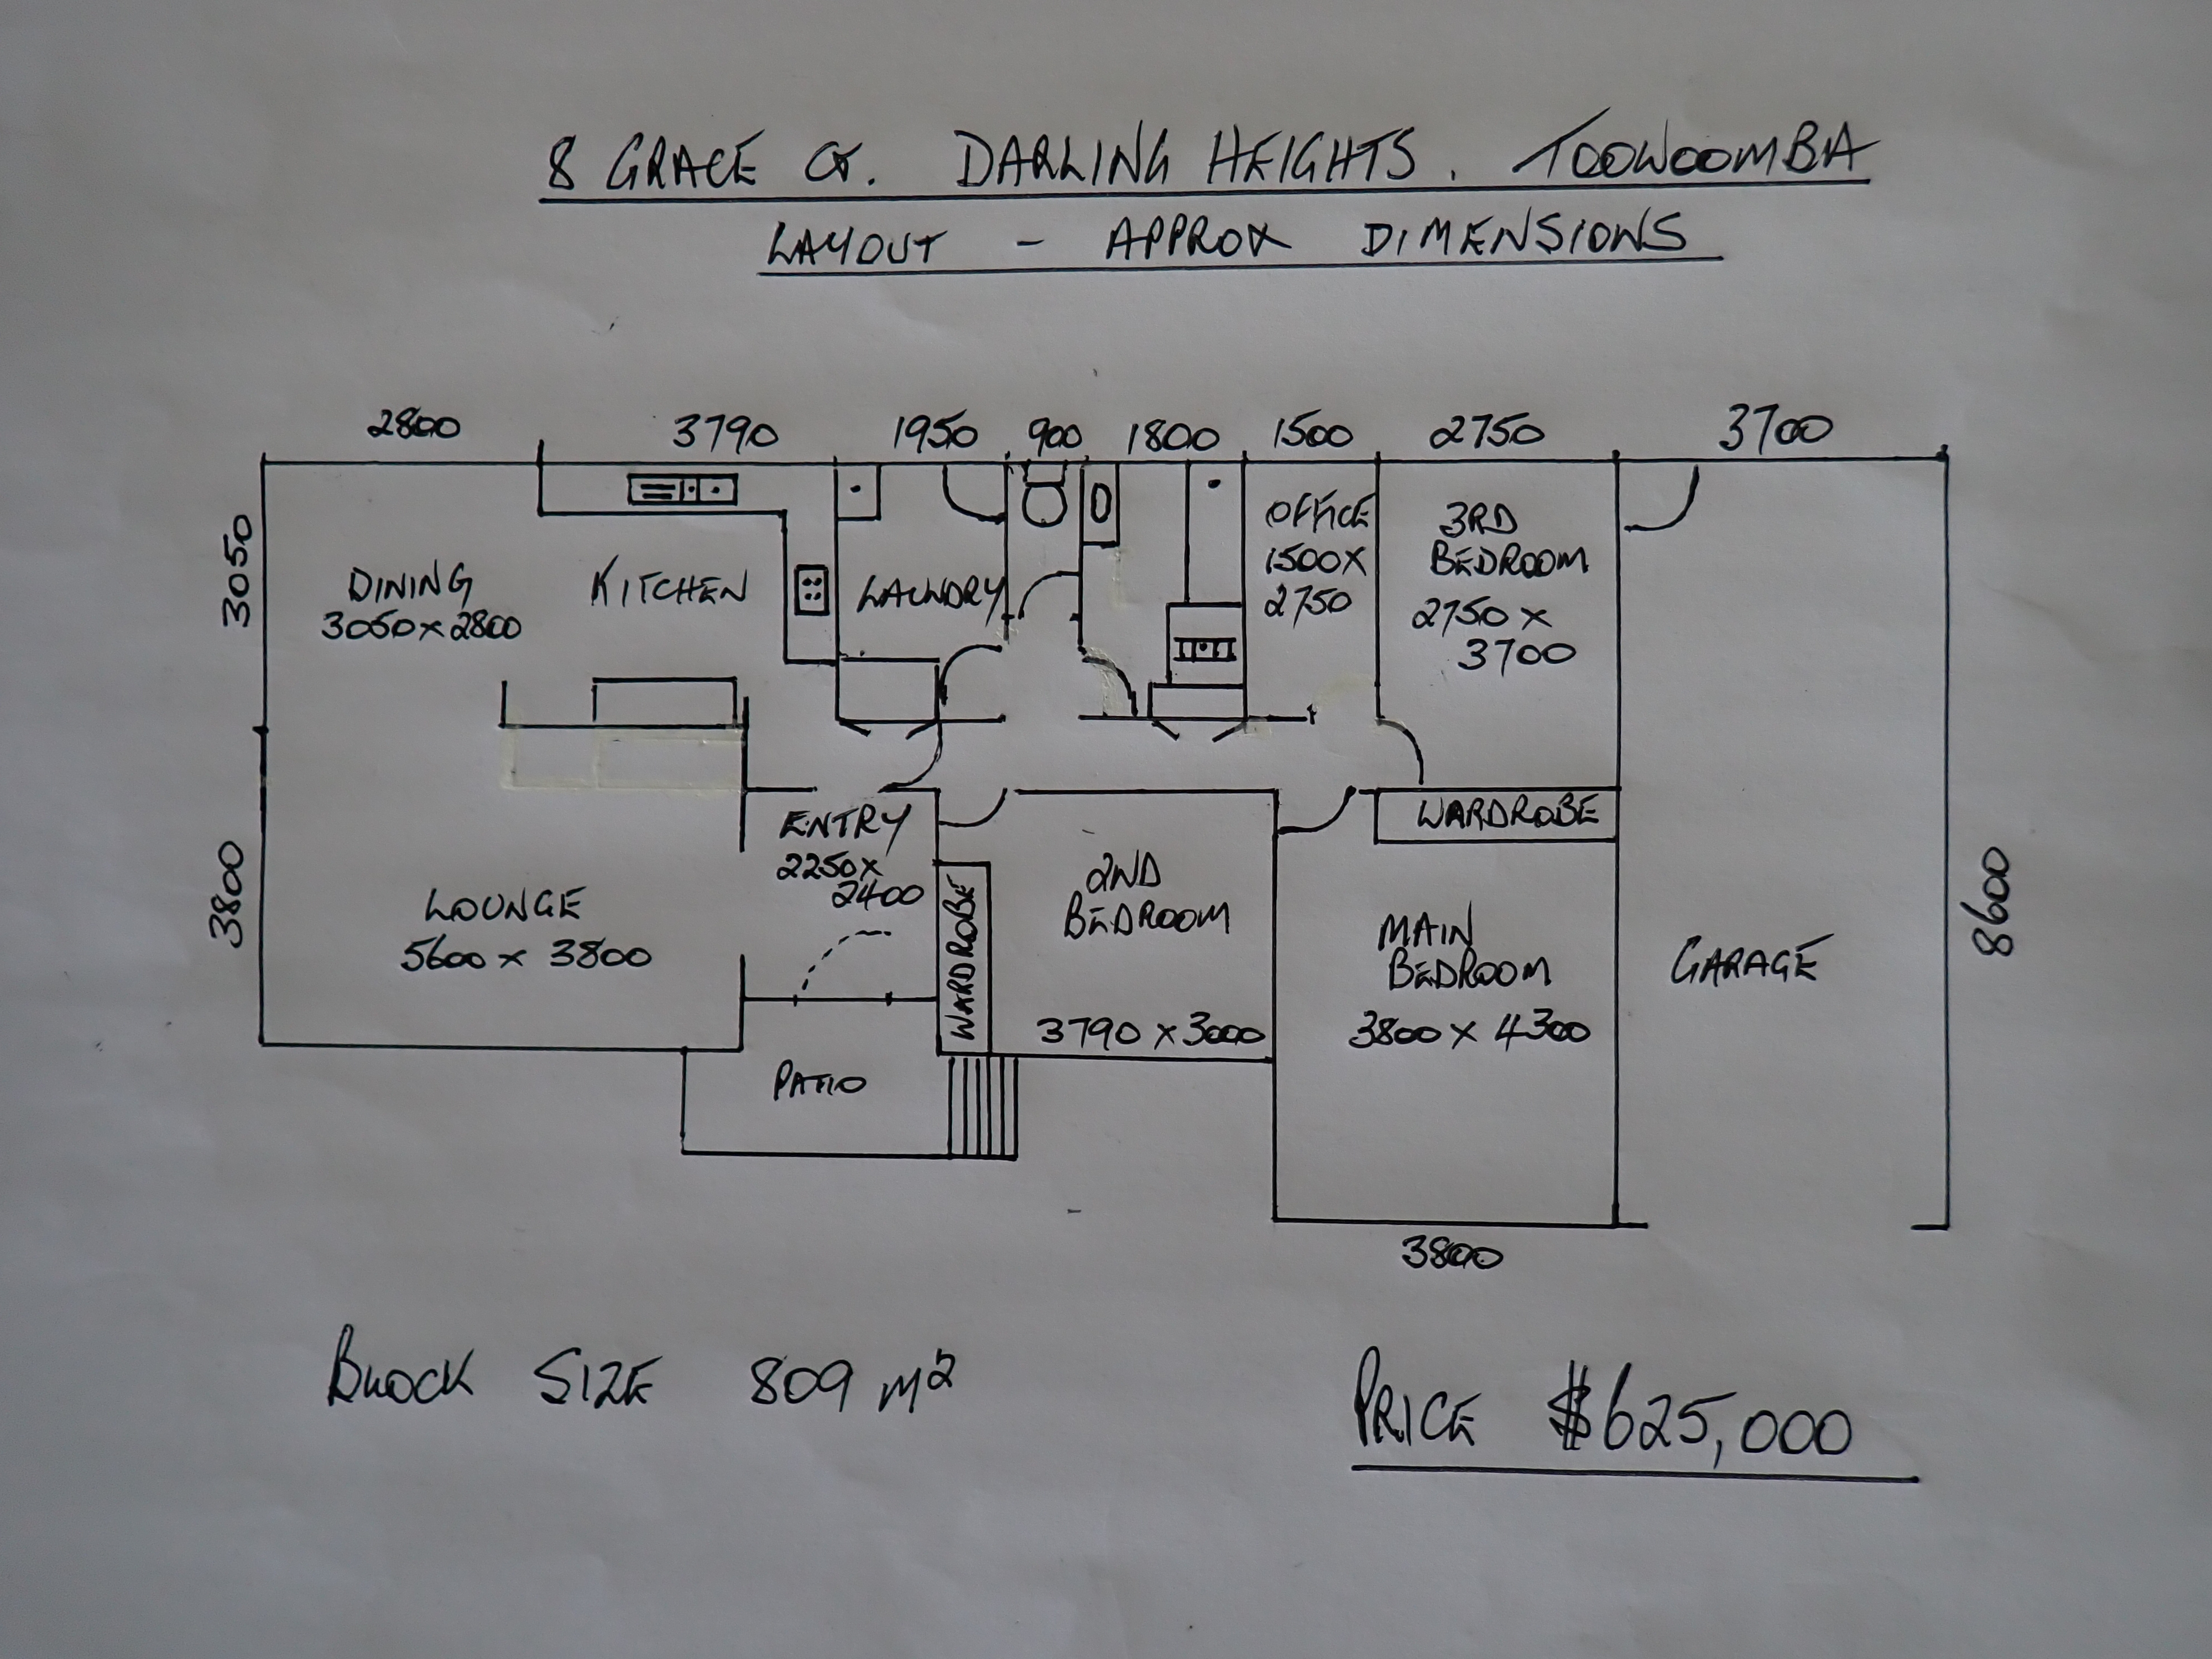 8 GRACE CT. DARLING HEIGHTS. TOOWOOMBA
LAYOUT - APPROX DIMENSIONS
2800 3790 1950 900 1800 1500 2750 3700
3050
DINING
3050 x 2800
KITCHEN
LAUNDRY
OFFICE
1500 x
2750
3RD
BEDROOM
2750 x
3700
WARDROBE
3800
LOUNGE
5600 x 3800
ENTRY
2250 x
2400
WARDROBE
2ND
BEDROOM
3790 x 3000
MAIN
BEDROOM
3800 x 4300
GARAGE
8600
PATIO
3800
BLOCK SIZE 809 m²
PRICE $625,000